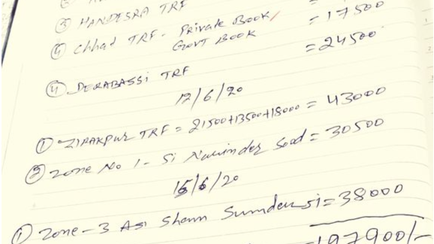 ③ MANDESRA TRF = 17500
⑥ Chhad TRF - Private Book/
Govt Book = 24500
④ DERABASSI TRF
12/6/20
① ZIRAKPUR TRF = 21500+13500+18000 = 43000
② Zone No 1 - Si Nawinder Sood = 30500
15/6/20
① Zone-3 Asi Sham Sunder Ji = 38000
197900/-